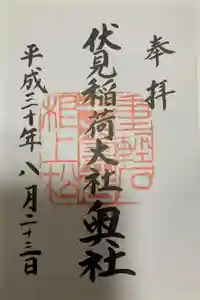 奉拝
伏見稲荷大社奥社
平成三十年八月二十三日